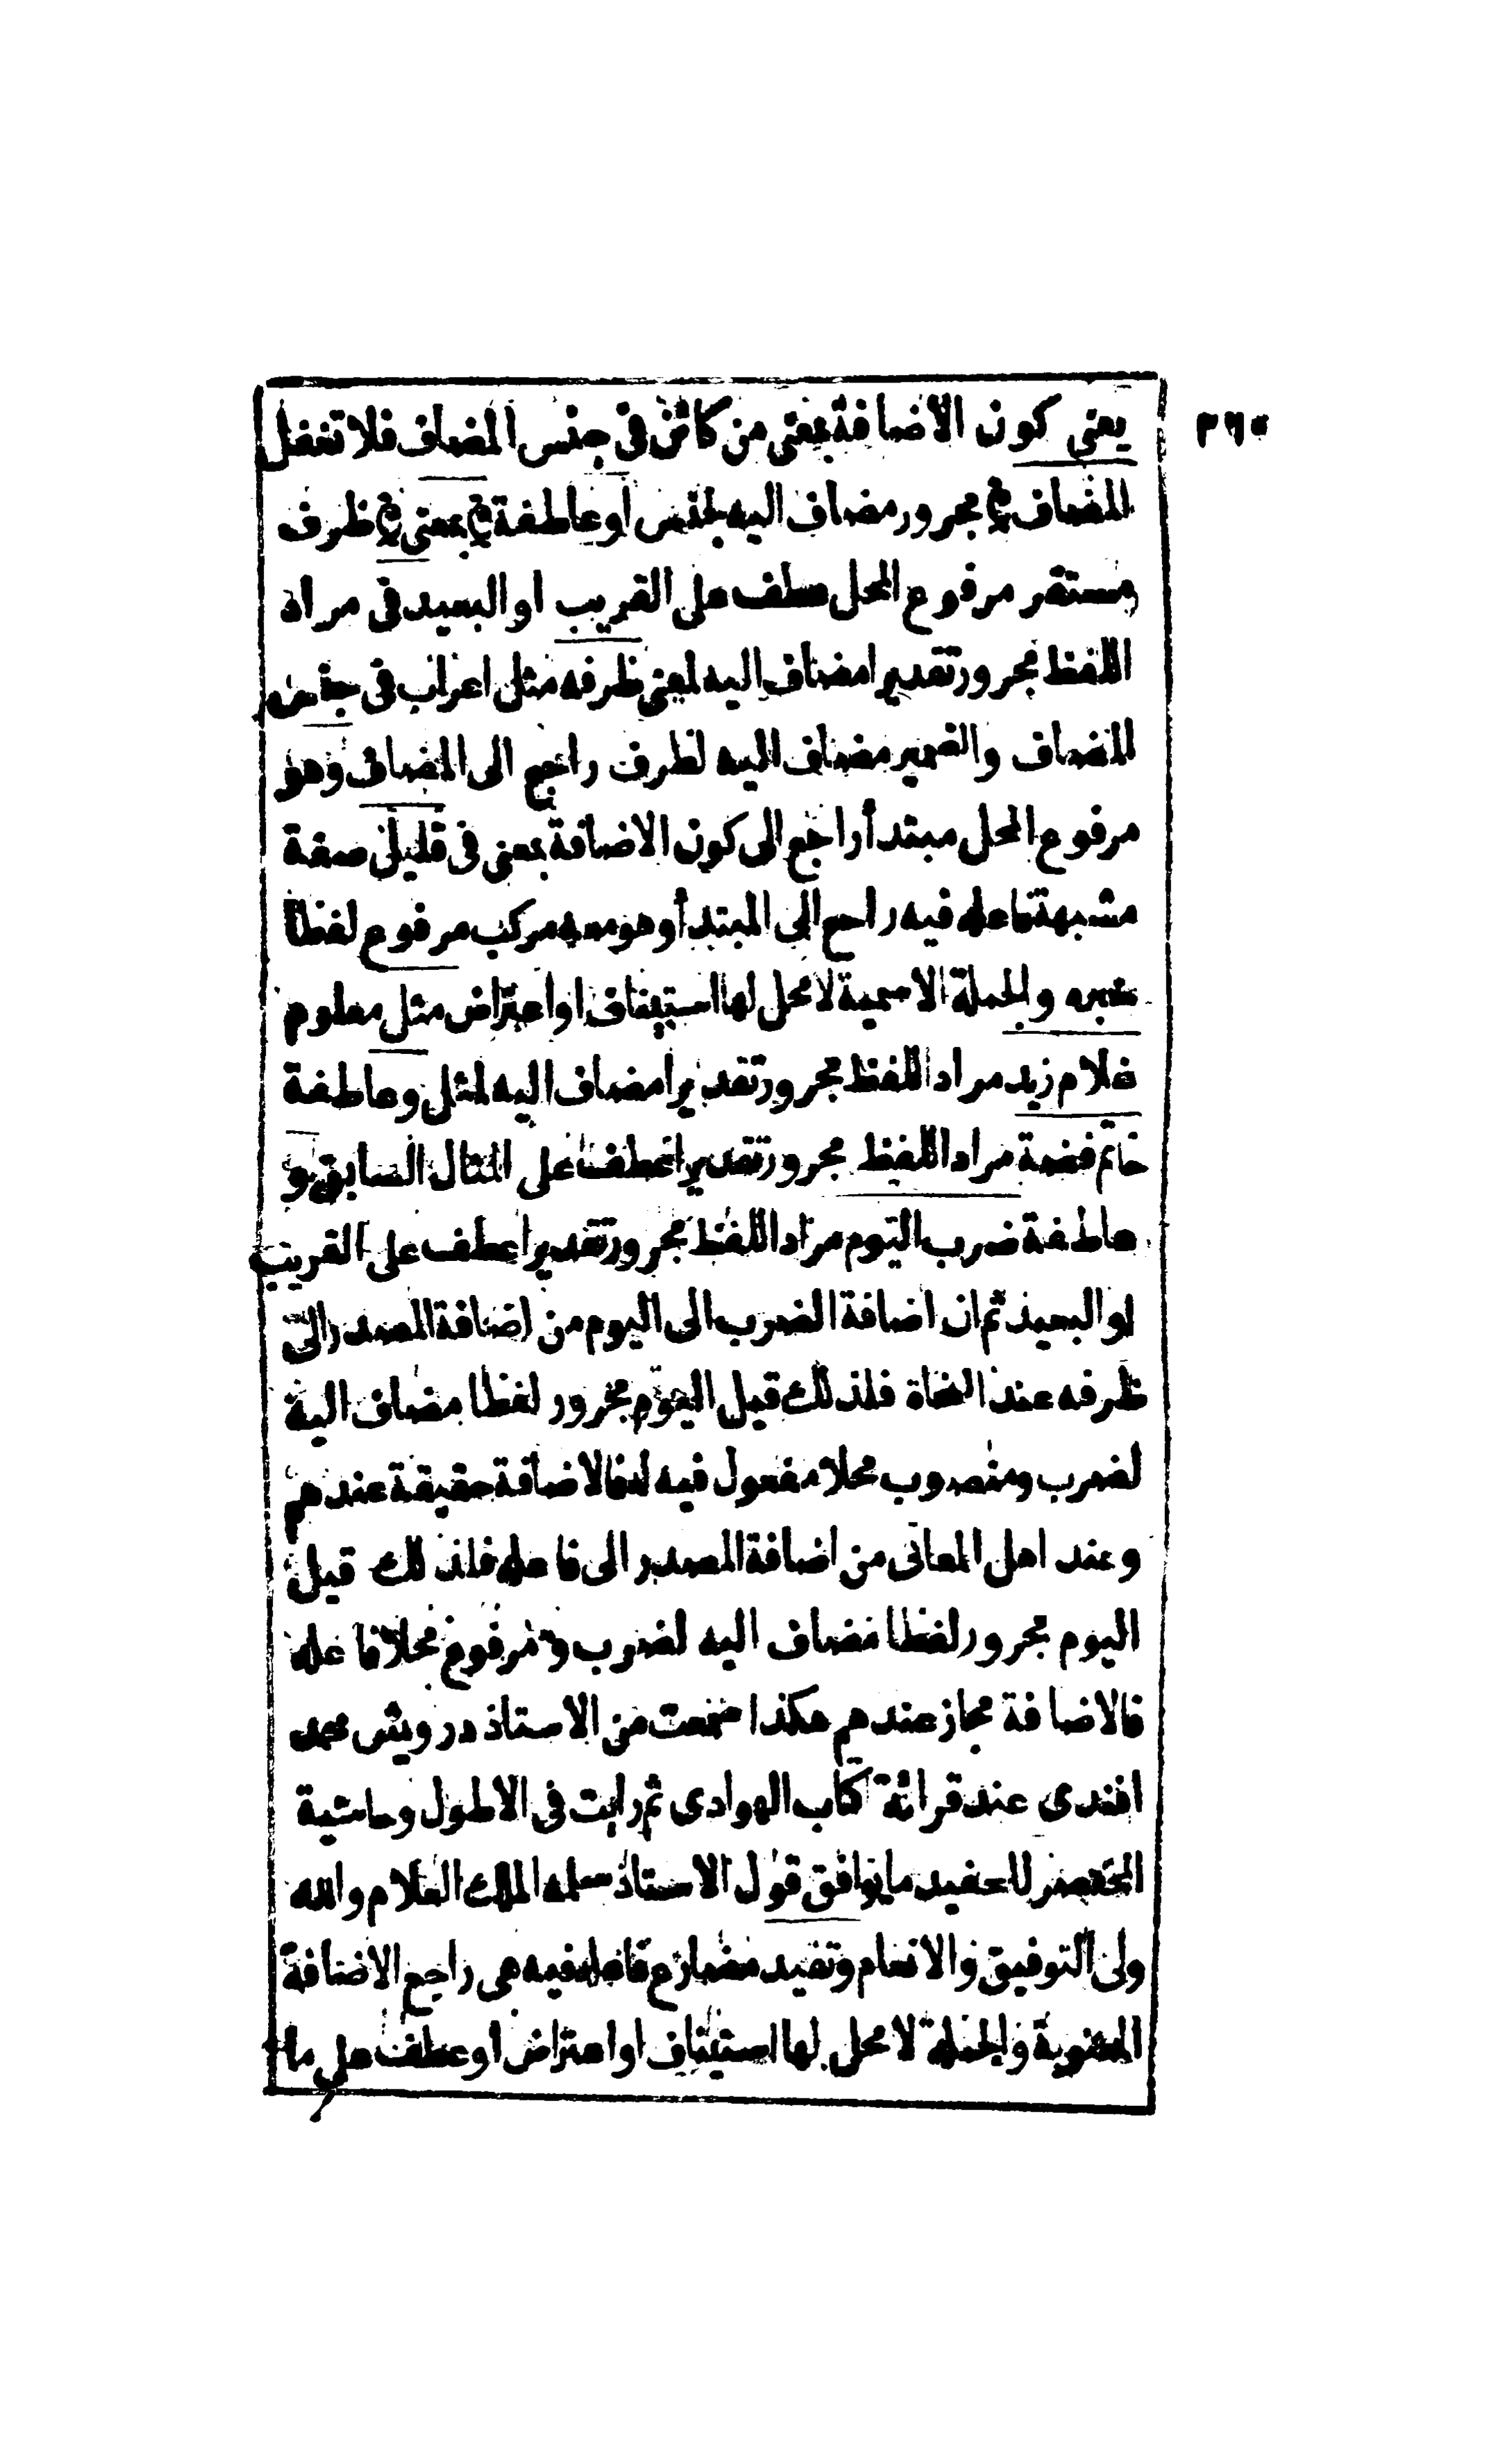 ٢٦٠
يعني كون الاضافة بمعنى من كائن فى جنس المضاف فلا تغفل
المضاف مجرور مضاف اليه لجنس او عاطفة بمعنى ظرف
مستقر مرفوع المحل عطف على القريب او البعيد فى مراد
اللفظ مجرور تقديرا مضاف اليه لمعنى ظرفه مثل اعراب فى جنس
المضاف والضمير مضاف اليه لظرف راجع الى المضاف وهو
مرفوع المحل مبتدأ راجع الى كون الاضافة بمعنى فى قليل صفة
مشبهة فاعله فيه راجع الى المبتدأ وهو معه مركب مرفوع لفظا
خبره والجملة الاسمية لا محل لها استيناف او اعتراض مثل معلوم
غلام زيد مراد اللفظ مجرور تقديرا مضاف اليه لمثل و عاطفة
خاتم فضة مراد اللفظ مجرور تقديرا عطف على المثال السابق و
عاطفة ضرب اليوم مراد اللفظ مجرور تقديرا عطف على القريب
او البعيد ثم ان اضافة الضرب الى اليوم من اضافة المصدر الى
ظرفه عند النحاة فلذلك قيل اليوم مجرور لفظا مضاف اليه
لضرب ومنصوب محلا مفعول فيه له فالاضافة حقيقة عندهم
وعند اهل المعانى من اضافة المصدر الى فاعله فلذلك قيل
اليوم مجرور لفظا مضاف اليه لضرب ومرفوع محلا فاعله
فالاضافة مجاز عندهم هكذا سمعت من الاستاذ درويش محمد
افندى عند قرائة كتاب الهوادى ثم رايت فى الاطول وحاشية
المختصر للحفيد ما يوافق قول الاستاذ سلمه الملك العلام والله
ولى التوفيق والانعام وتفيد مضارع فاعله فيه هى راجع الاضافة
المعنوية والجملة لا محل لها استيناف او اعتراض او عطف على ما